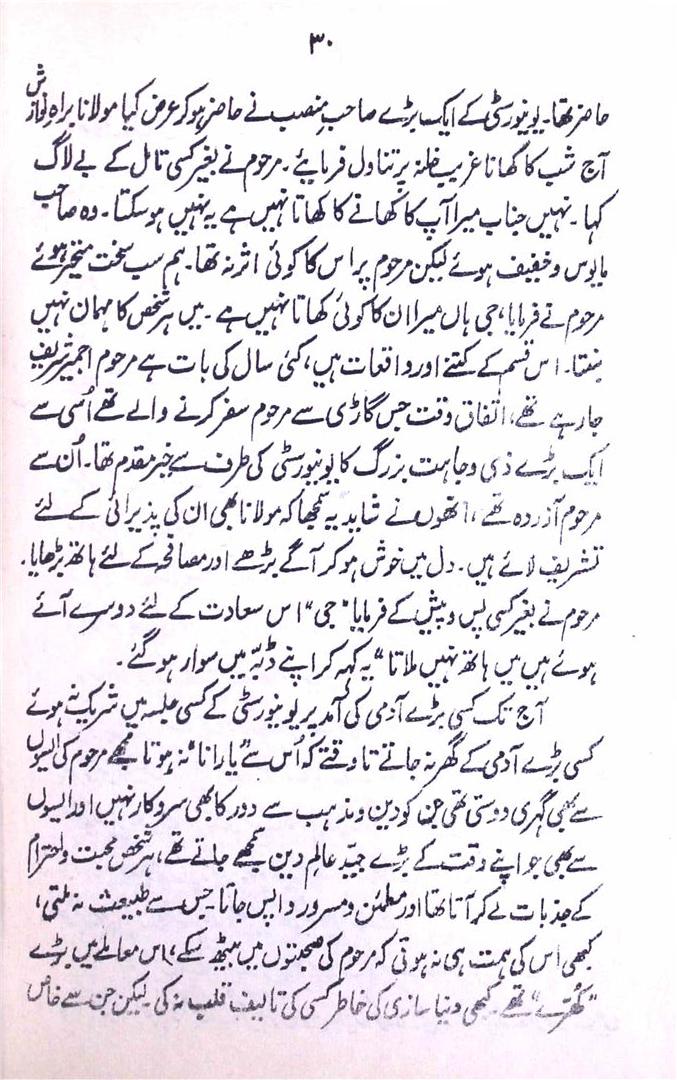 ۳۰
حاضر تھا۔ یونیورسٹی کے ایک بڑے صاحبِ منصب نے حاضر ہو کر عرض کیا مولانا براہِ نوازش
آج شب کا کھانا غریب خانہ پر تناول فرمایئے۔ مرحوم نے بغیر کسی تامل کے بے لاگ
کہا۔ نہیں جناب میرا آپ کا کھانے کا کھاتا نہیں ہے یہ نہیں ہو سکتا۔ وہ صاحب
مایوس و خفیف ہوئے لیکن مرحوم پر اس کا کوئی اثر نہ تھا۔ ہم سب سخت متحیر ہوئے
مرحوم نے فرمایا، جی ہاں میرا ان کا کوئی کھاتا نہیں ہے۔ میں ہر شخص کا مہمان نہیں
بنتا۔ اس قسم کے کتنے اور واقعات ہیں، کئی سال کی بات ہے مرحوم اجمیر شریف
جا رہے تھے، اتفاق وقت جس گاڑی سے مرحوم سفر کرنے والے تھے اُسی سے
ایک بڑے ذی وجاہت بزرگ کا یونیورسٹی کی طرف سے خیر مقدم تھا۔ اُن سے
مرحوم آزردہ تھے، انھوں نے شاید یہ سمجھا کہ مولانا بھی ان کی پذیرائی کے لئے
تشریف لائے ہیں۔ دل میں خوش ہو کر آگے بڑھے اور مصافحہ کے لئے ہاتھ بڑھایا۔
مرحوم نے بغیر کسی پس و پیش کے فرمایا "جی" اس سعادت کے لئے دوسرے آئے
ہوئے ہیں میں ہاتھ نہیں ملاتا" یہ کہہ کر اپنے ڈبّہ میں سوار ہو گئے۔
آج تک کسی بڑے آدمی کی آمد پر یونیورسٹی کے کسی جلسہ میں شریک نہ ہوئے
کسی بڑے آدمی کے گھر نہ جاتے تا وقتے کہ اُس سے "یارانا" نہ ہوتا مجھے مرحوم کی ایسوں
سے بھی گہری دوستی تھی جن کو دین و مذہب سے دور کا بھی سروکار نہیں اور ایسوں
سے بھی جو اپنے وقت کے بڑے جیّد عالم دین سمجھے جاتے تھے، ہر شخص محبت و احترام
کے جذبات لے کر آتا تھا اور مطمئن و مسرور واپس جاتا جس سے طبیعت نہ ملتی،
کبھی اس کی ہمت ہی نہ ہوتی کہ مرحوم کی صحبتوں میں بیٹھ سکے، اس معاملے میں بڑے
"کھُرّے" تھے۔ کبھی دنیا سازی کی خاطر کسی کی تالیف قلب نہ کی۔ لیکن جن سے خاص